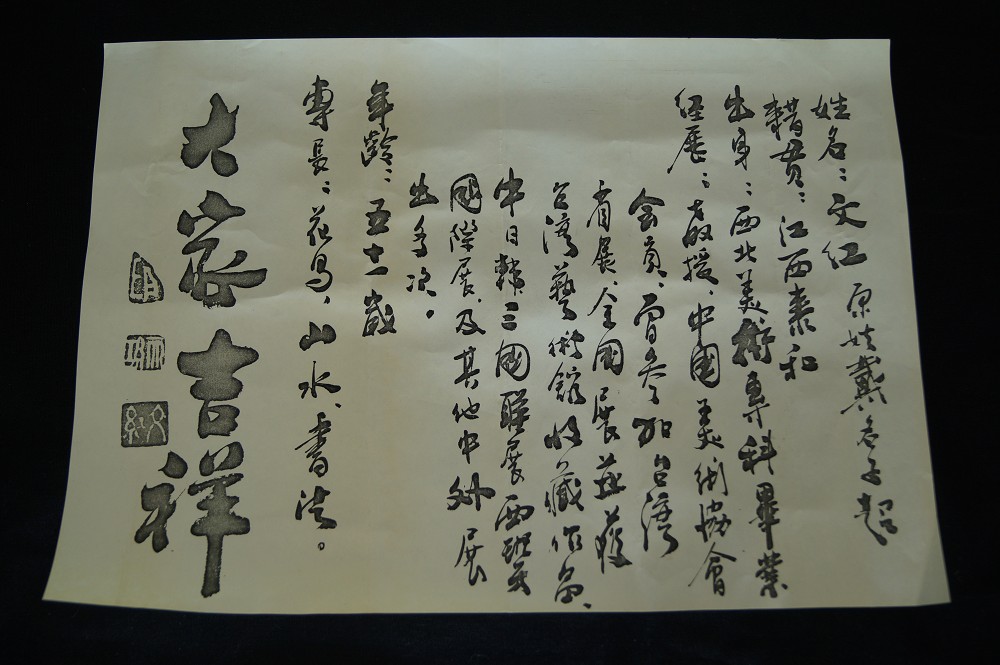 姓名：文红 原姓戴名子超
籍贯：江西泰和
出身：西北美術專科畢業
经展：教授、中国美術協會
会员、曾參加台湾
省展、全國展並獲
台湾藝術館收藏作品、
中日韩三國聯展西班牙
國際展及其他中外展
出多次。
年齡：五十一歲
專長：花鸟，山水、書法。
大家吉祥